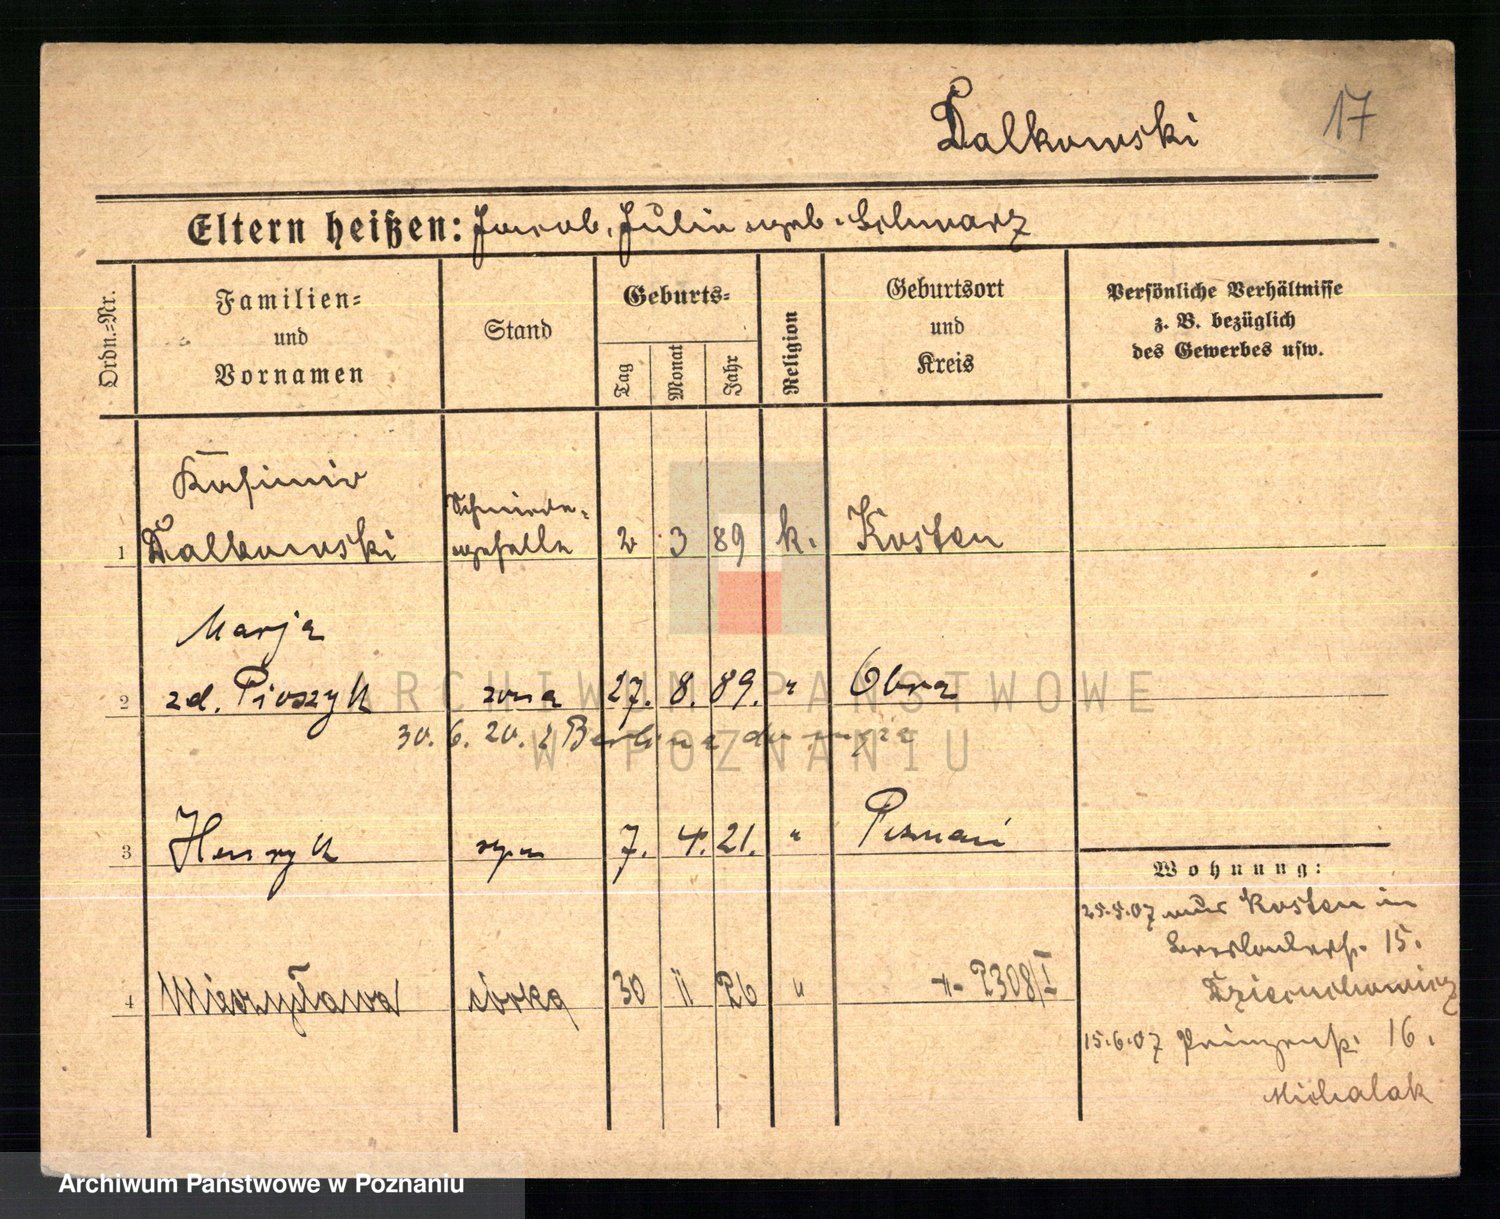 Dalkowski
17
Eltern heißen: Jacob, Julia geb. Schwarz
Ordn.-Nr.
Familien-
und
Vornamen
Stand
Geburts-
Tag
Monat
Jahr
Religion
Geburtsort
und
Kreis
Persönliche Verhältnisse
z. B. bezüglich
des Gewerbes usw.
Kasimir
Schmiede-
1 Dalkowski geselle 2 3 89 k. Kosten
Marja
2 zd. Pioszyk żona 27. 8. 89. " Obra
30. 6. 20. z Berlina
3 Henryk syn 7. 4. 21. " Poznań
Wohnung:
25.5.07 aus Kosten in
Breslauerstr. 15.
4 Mieczysława córka 30 11 26 " 2308/I
15.6.07 Prinzenstr. 16.
Michalak
ARCHIWUM PAŃSTWOWE
W POZNANIU
Archiwum Państwowe w Poznaniu